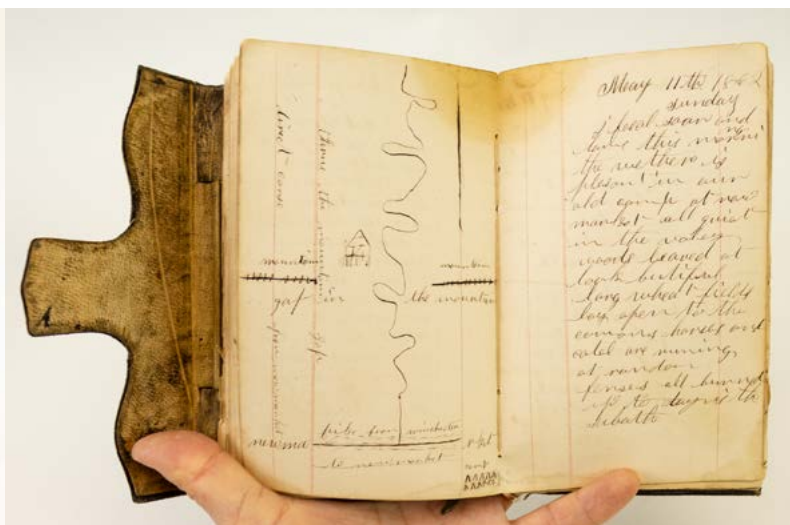 direct corse
threw the mountain gap
mountain
mountain
gap in the mountain
from newmarket
pike from winchester
newmar
to newmarket
May 11th 1862
Sunday
I feal soar and
lame this morni
ng
the wether is
plesant in our
old camp at new
market all quiet
in the valley
woods leaved at
look butiful
long wheat fields
lay open to the
comons horses and
catel are runing
at random
fenses all burnd
up to day is the
sibath